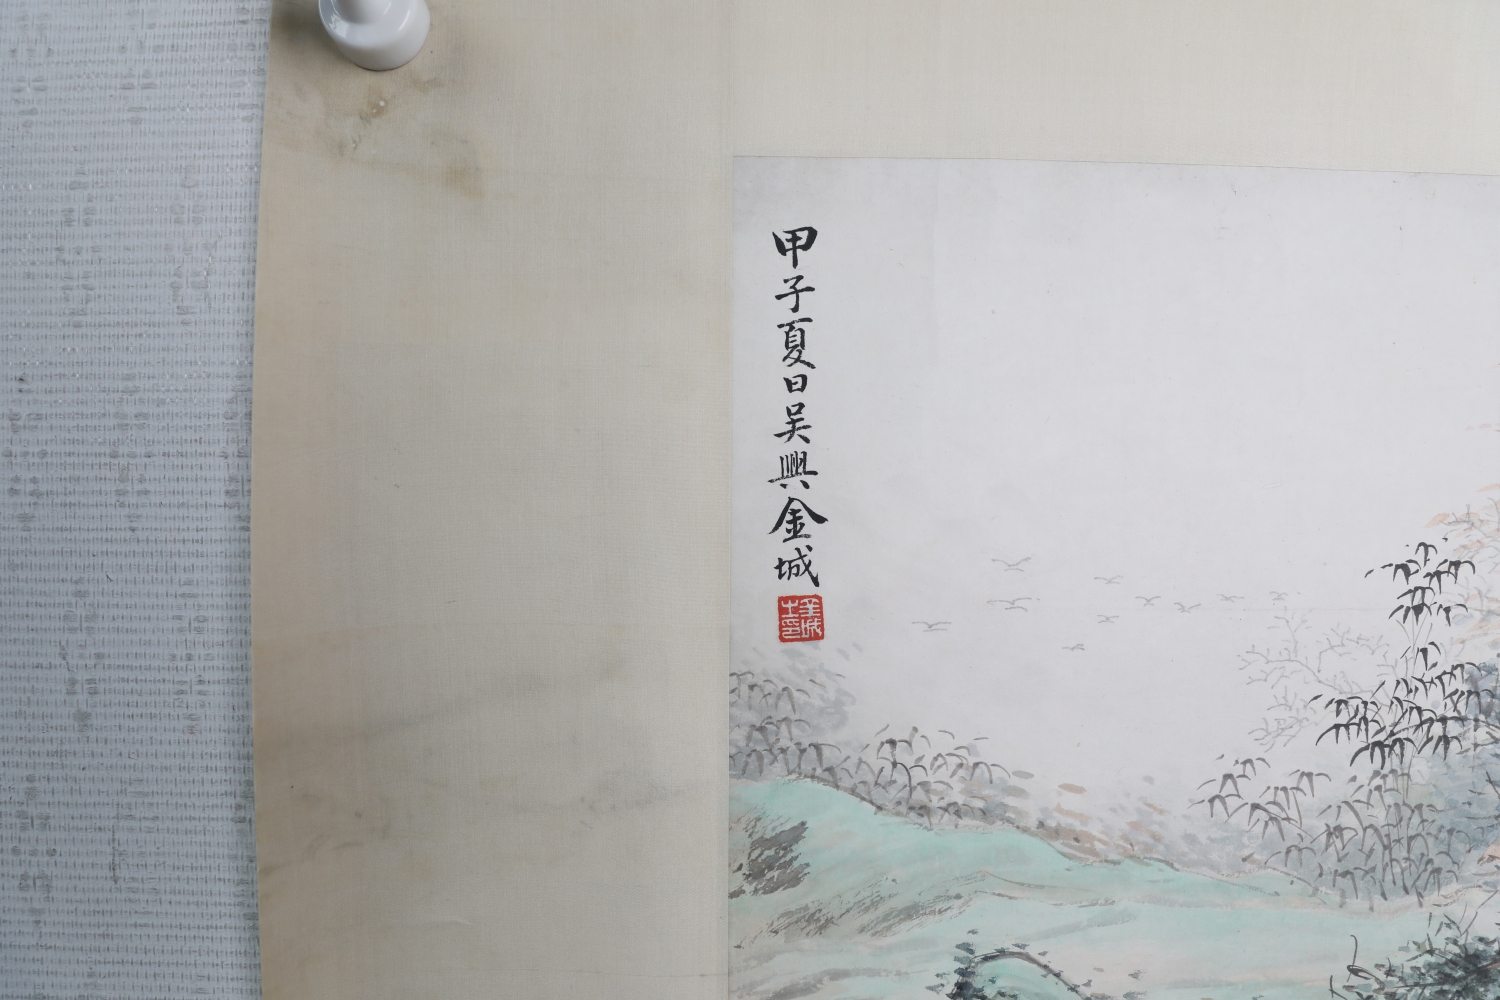 甲子夏日吳興金城
金城
之印